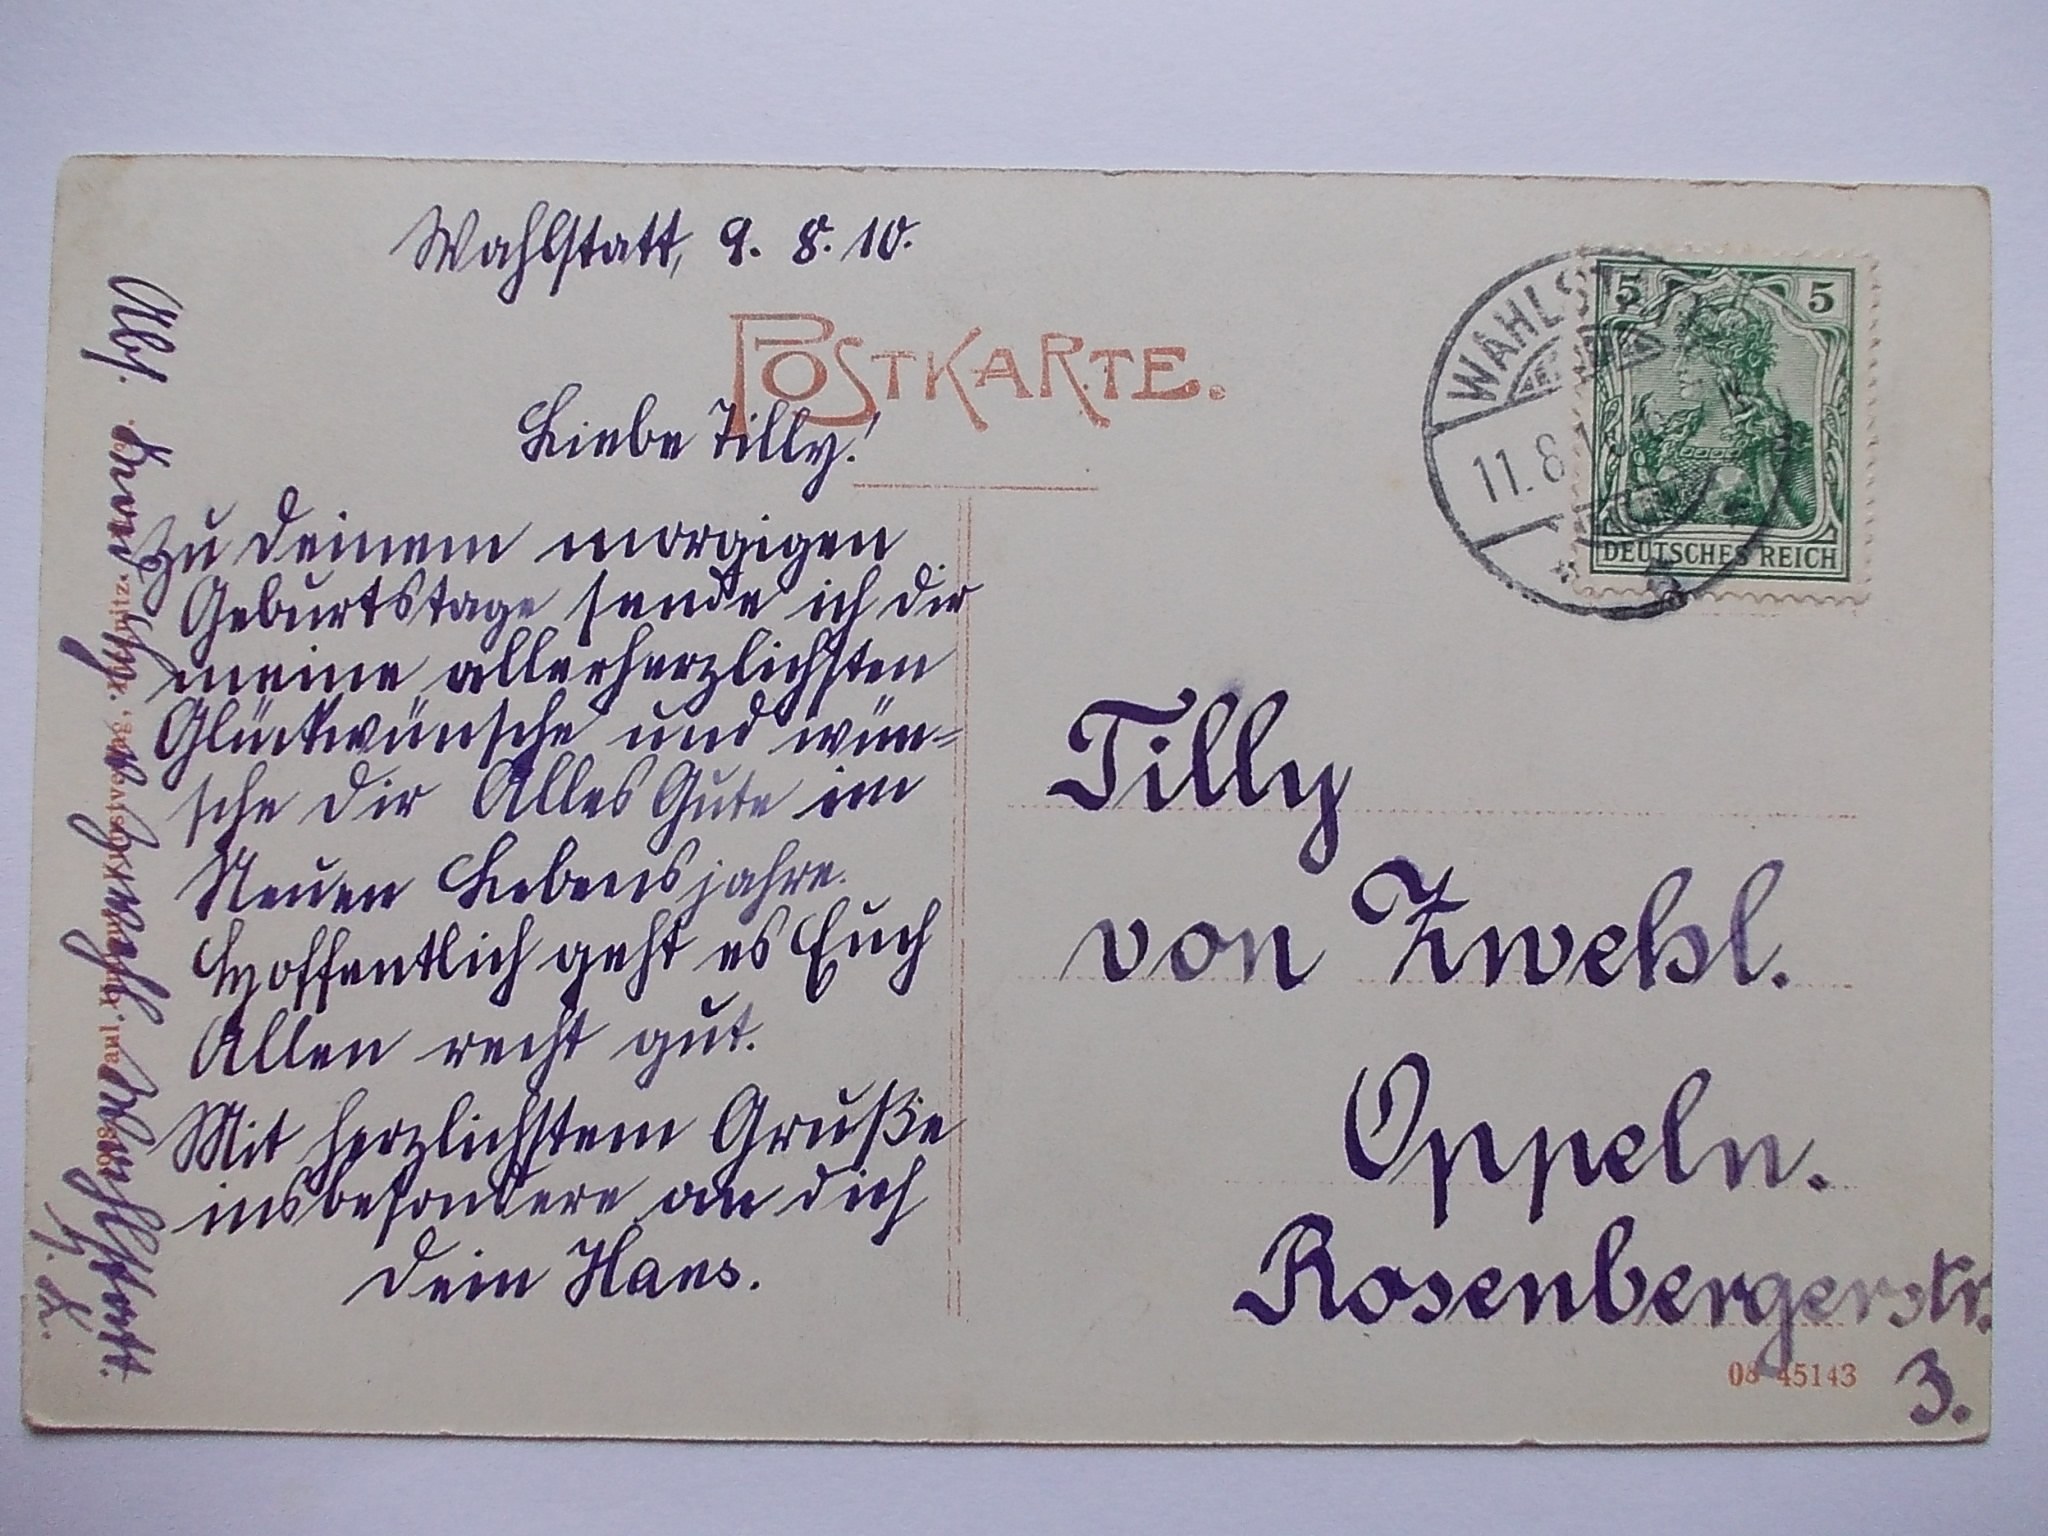 Wahlstatt, 9. 8. 10.
POSTKARTE.
Liebe Tilly!
Zu deinem morgigen
Geburtstage sende ich dir
meine allerherzlichsten
Glückwünsche und wün=
sche dir Alles Gute im
Neuen Lebensjahre.
Hoffentlich geht es Euch
Allen recht gut.
Mit herzlichstem Gruße
insbesondere an dich
dein Hans.
Abs. Hans v. Zwehl. Wahlstatt.
WAHLST
11.8.1
5 5
DEUTSCHES REICH
Tilly
von Zwehl.
Oppeln.
Rosenbergerstr.
3.
08 45143